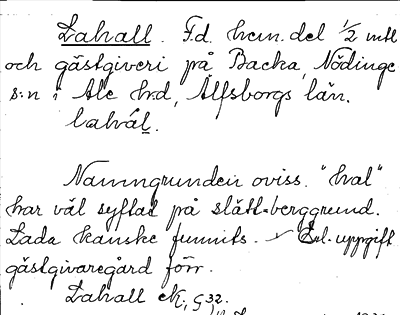 Lahall. F.d. hem.del 1/2 mtl
och gästgiveri på Backa, Nödinge
s:n i Ale hrd, Älfsborgs län.
lalhäl.
Namngrunden oviss. "hal"
har väl syftat på slät berggrund.
Lada kanske funnits. Enl. uppgift
gästgivaregård förr.
Lahall